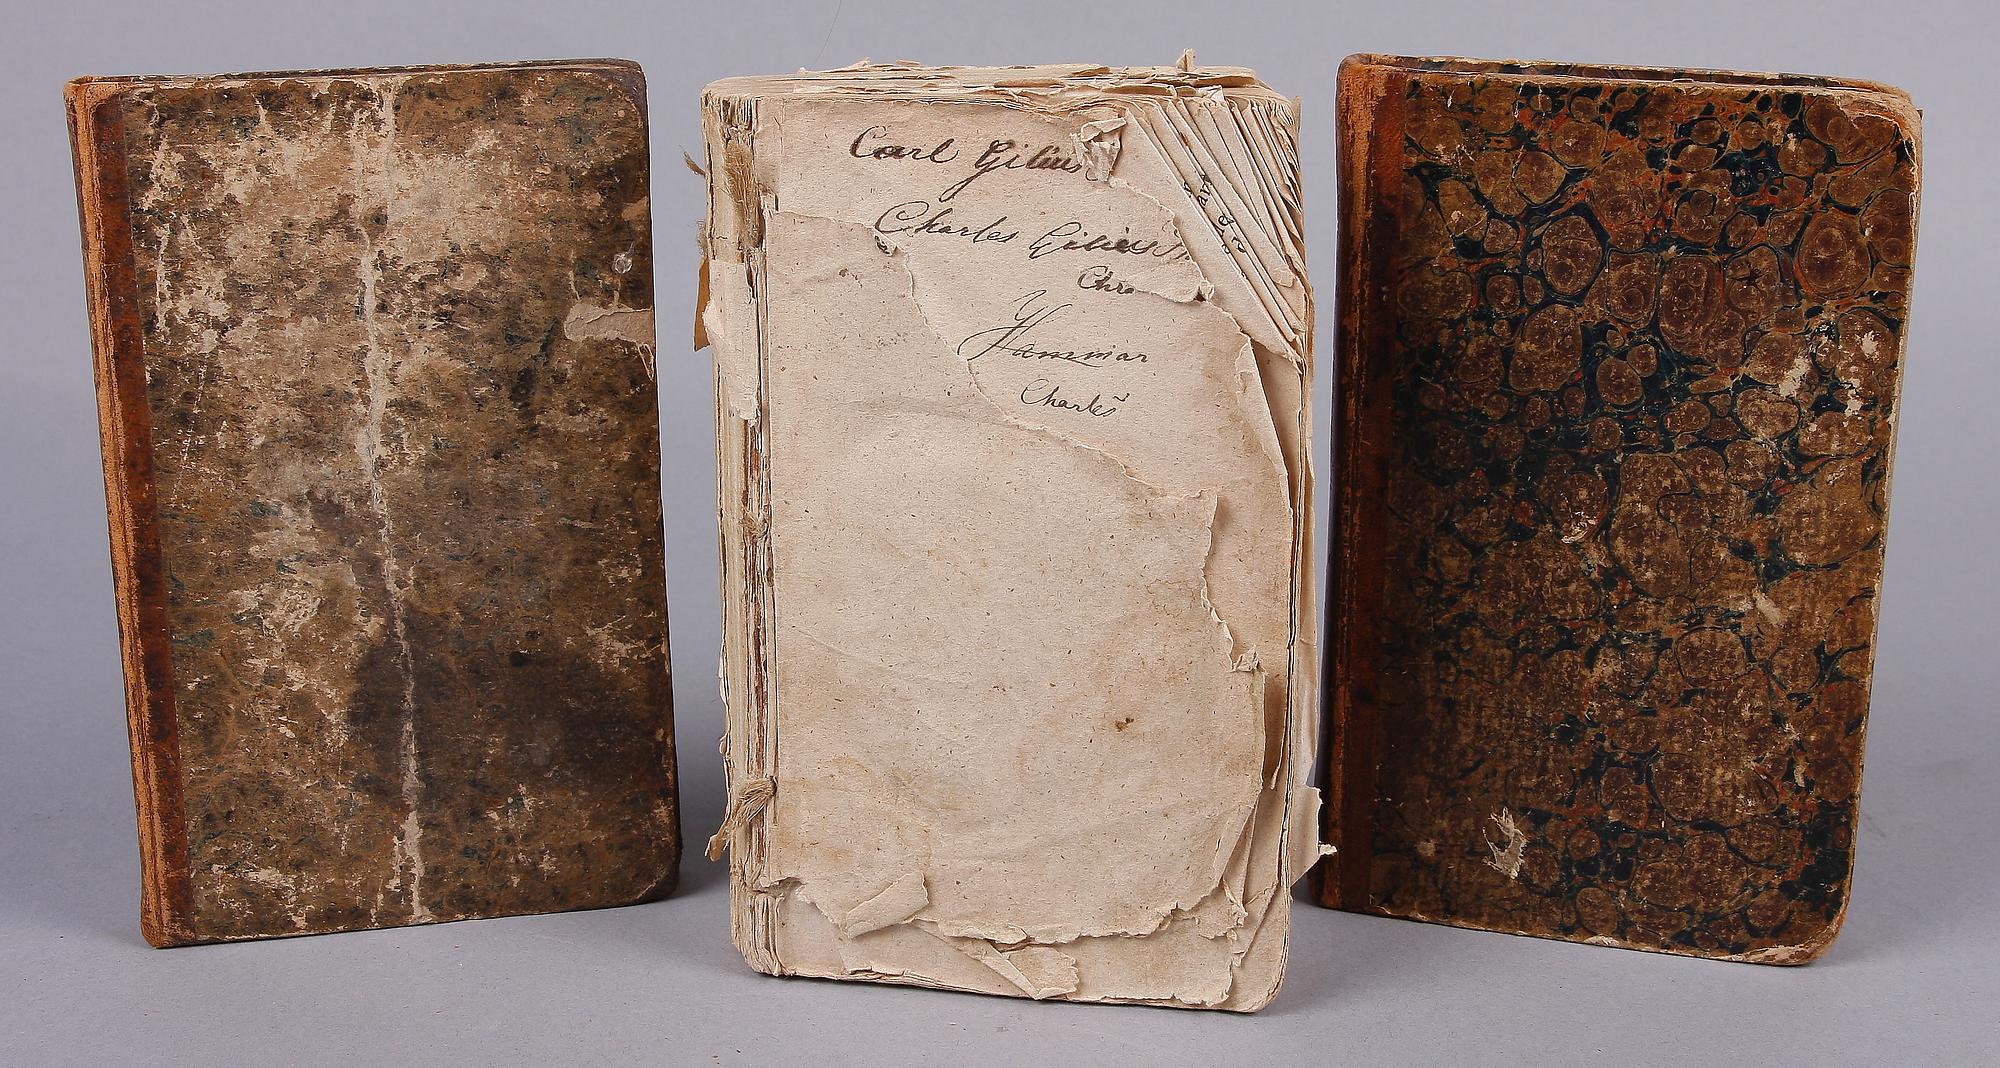 Carl Gilius
Charles Gilius
Chr
Hammar
Charles